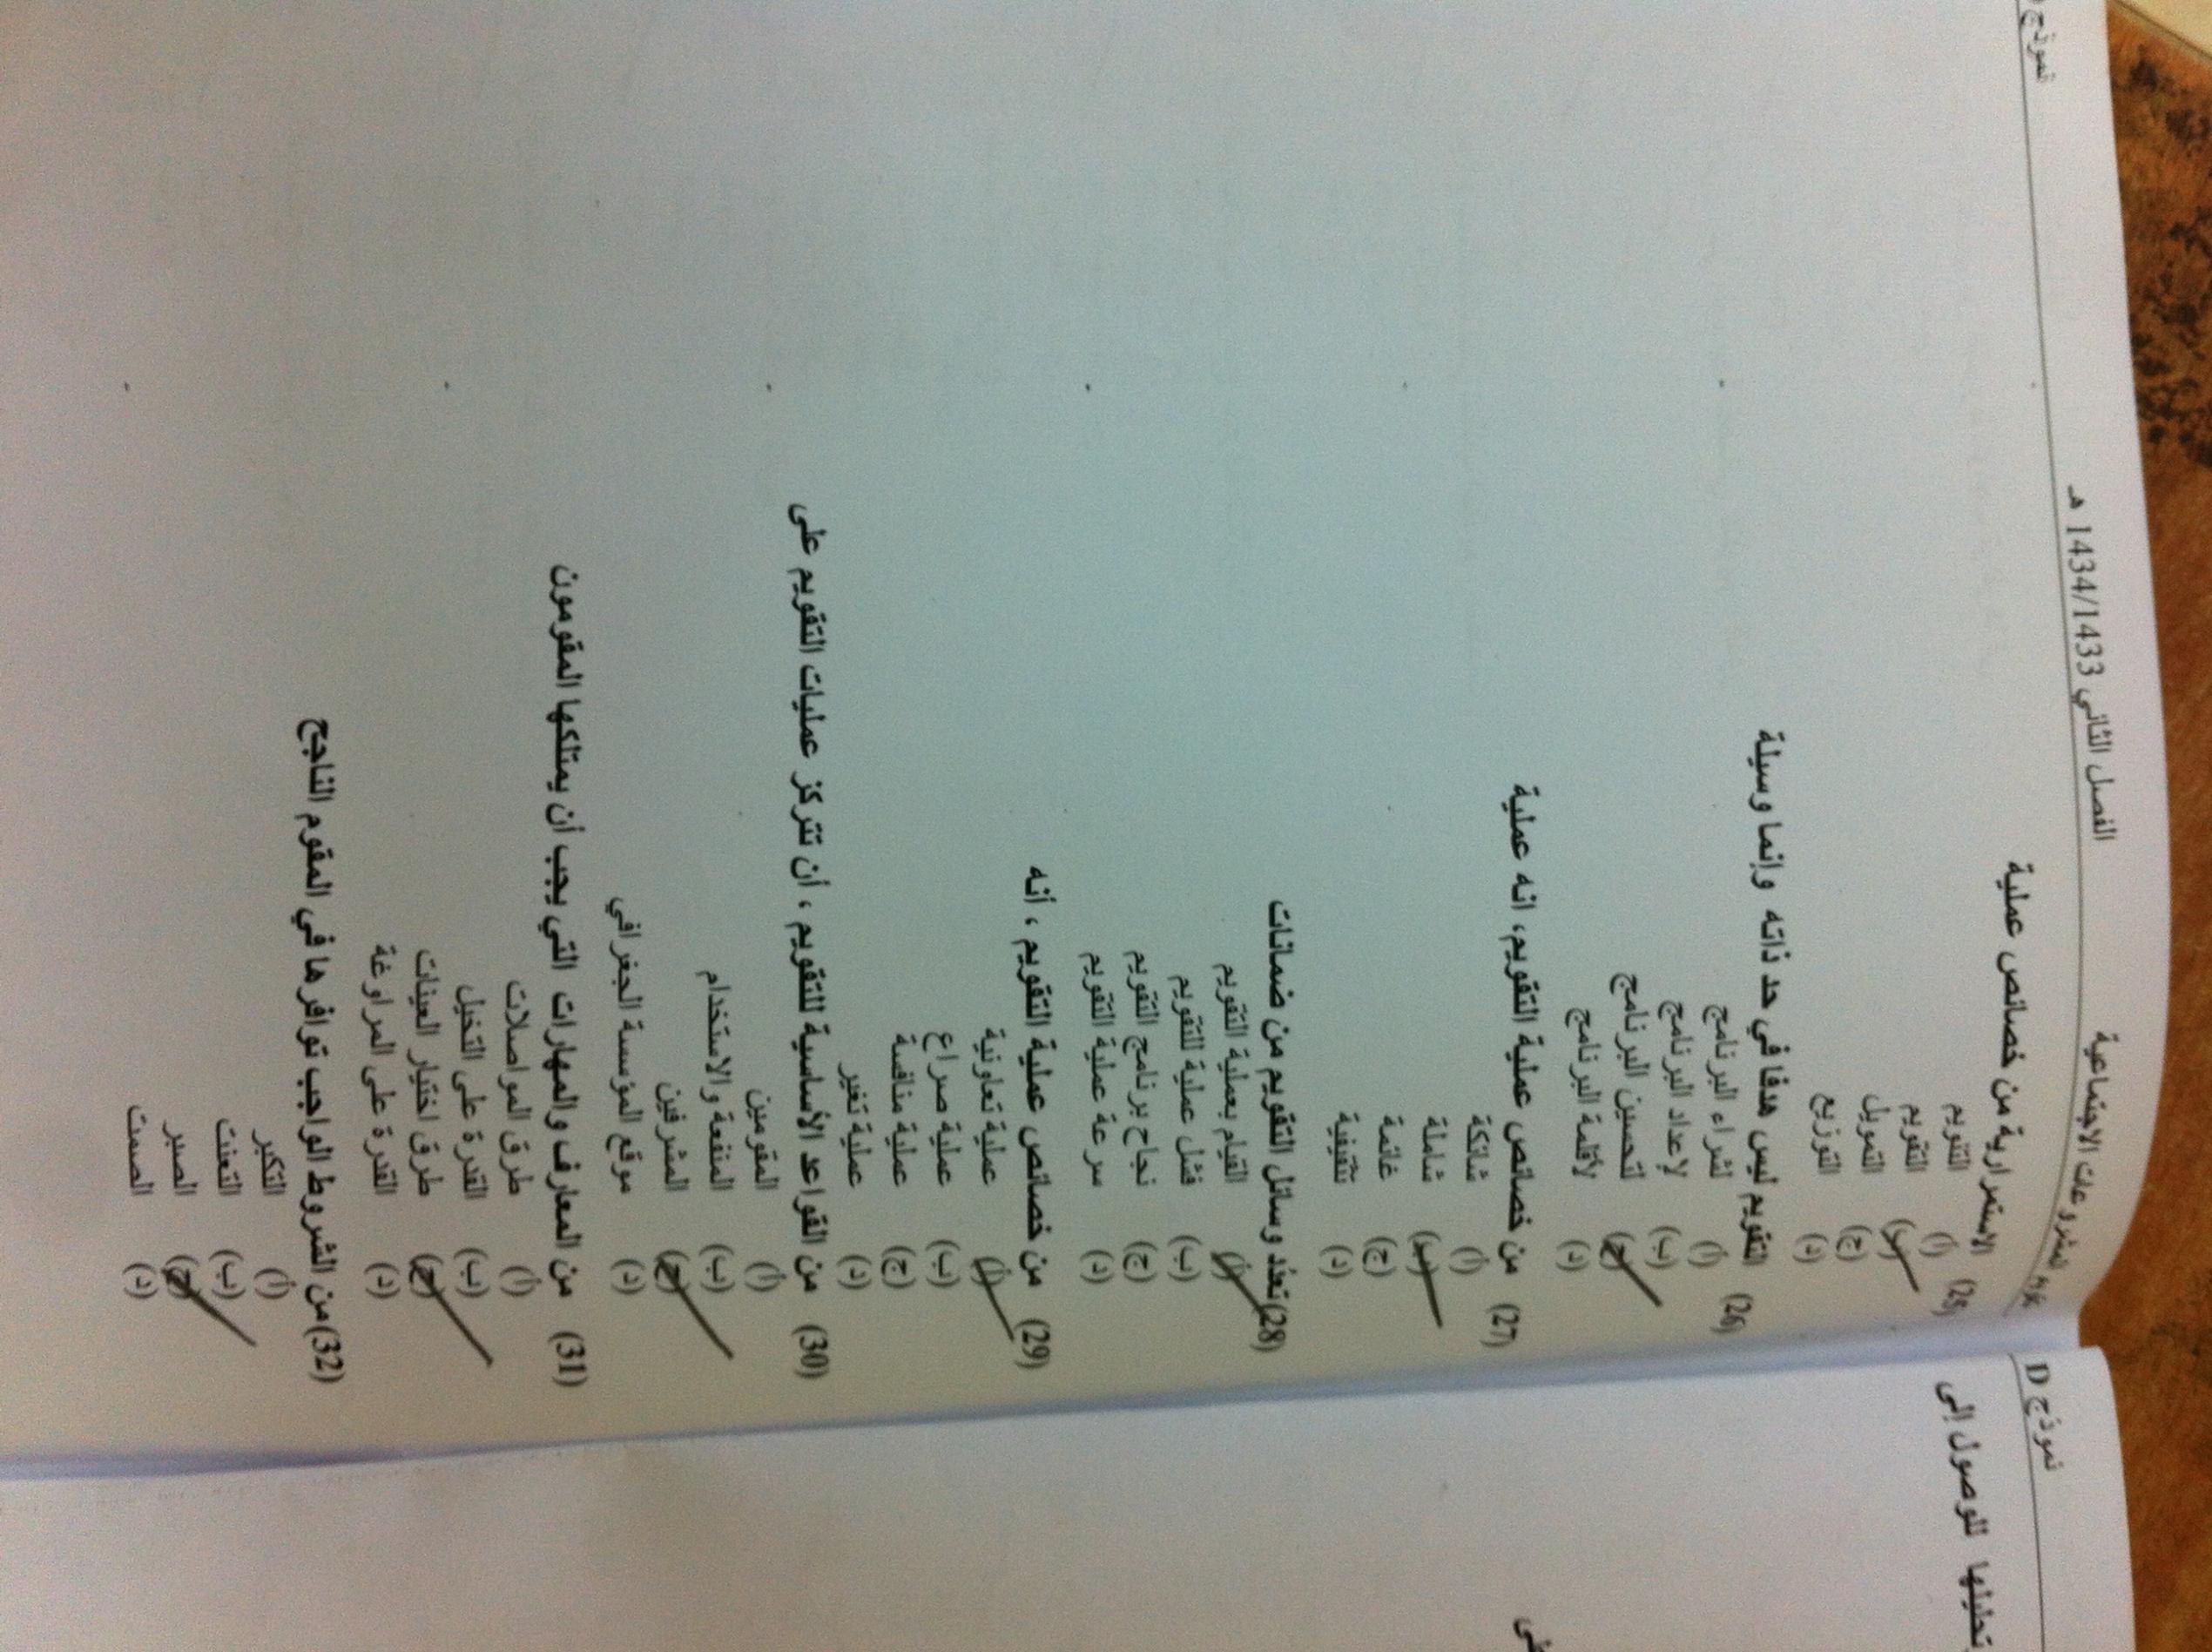 الفصل الثاني 1434/1433 هـ
نموذج
(25) الاستمرارية من خصائص عملية
(أ) التنويم
(ب) التقويم
(ج) التمويل
(د) التوزيع
(26) التقويم ليس هدفا في حد ذاته وإنما وسيلة
(أ) لشراء البرنامج
(ب) لإعداد البرنامج
(ج) لتحسين البرنامج
(د) لأقلمة البرنامج
(27) من خصائص عملية التقويم، انه عملية
(أ) شائكة
(ب) شاملة
(ج) غائمة
(د) تثقيفية
(28) تعدد وسائل التقويم من ضمانات
(أ) القيام بعملية التقويم
(ب) فشل عملية للتقويم
(ج) نجاح برنامج التقويم
(د) سرعة عملية التقويم
(29) من خصائص عملية التقويم ، أنه
(أ) عملية تعاونية
(ب) عملية صراع
(ج) عملية منافسة
(د) عملية تغير
(30) من القواعد الأساسية للتقويم ، أن تتركز عمليات التقويم على
(أ) المقومين
(ب) المنفعة والاستخدام
(ج) المشرفين
(د) موقع المؤسسة الجغرافي
(31) من المعارف والمهارات التي يجب أن يمتلكها المقومون
(أ) طرق المواصلات
(ب) القدرة على التخيل
(ج) طرق اختيار العينات
(د) القدرة على المراوغة
(32) من الشروط الواجب توافرها في المقوم الناجح
(أ) التكبر
(ب) التعنت
(ج) الصبر
(د) الصمت
نموذج D
تحليلها للوصول إلى